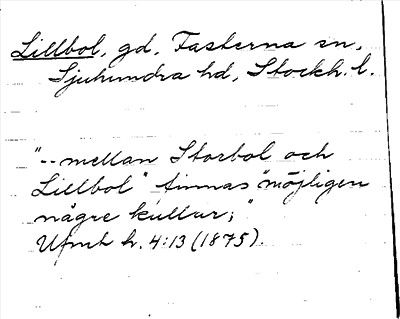 Lillbol, gd, Fasterna sn,
Sjuhundra hd, Stockh. l.
"-- mellan Storbol och
Lillbol" finnas "möjligen
några kullar;"
Ufmt h. 4:13 (1875).